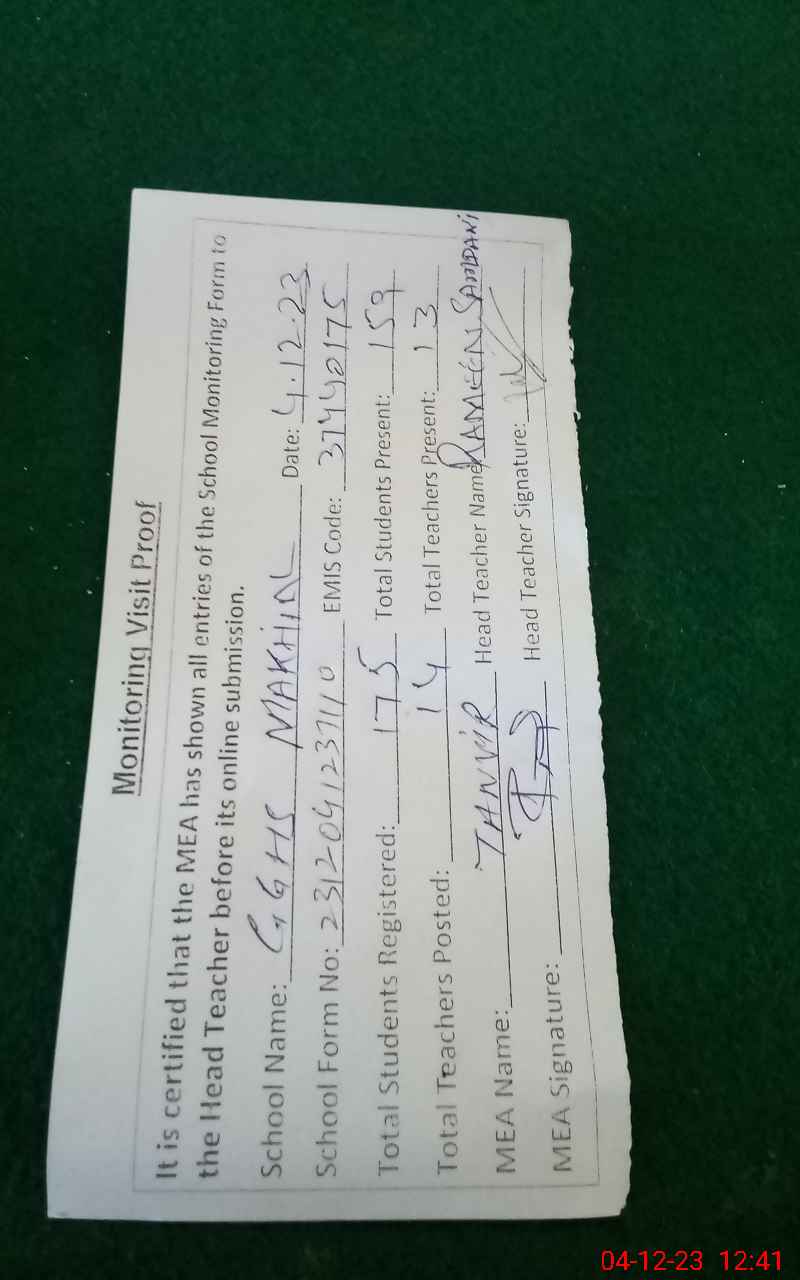 Monitoring Visit Proof
It is certified that the MEA has shown all entries of the School Monitoring Form to
the Head Teacher before its online submission.
School Name: GGHS MAKHIAL Date: 4.12.23
School Form No: 231204123710 EMIS Code: 37440175
Total Students Registered: 175 Total Students Present: 159
Total Teachers Posted: 14 Total Teachers Present: 13
MEA Name: TANVIR Head Teacher Name: RAMEEN SAMDANI
MEA Signature: Head Teacher Signature:
04-12-23 12:41